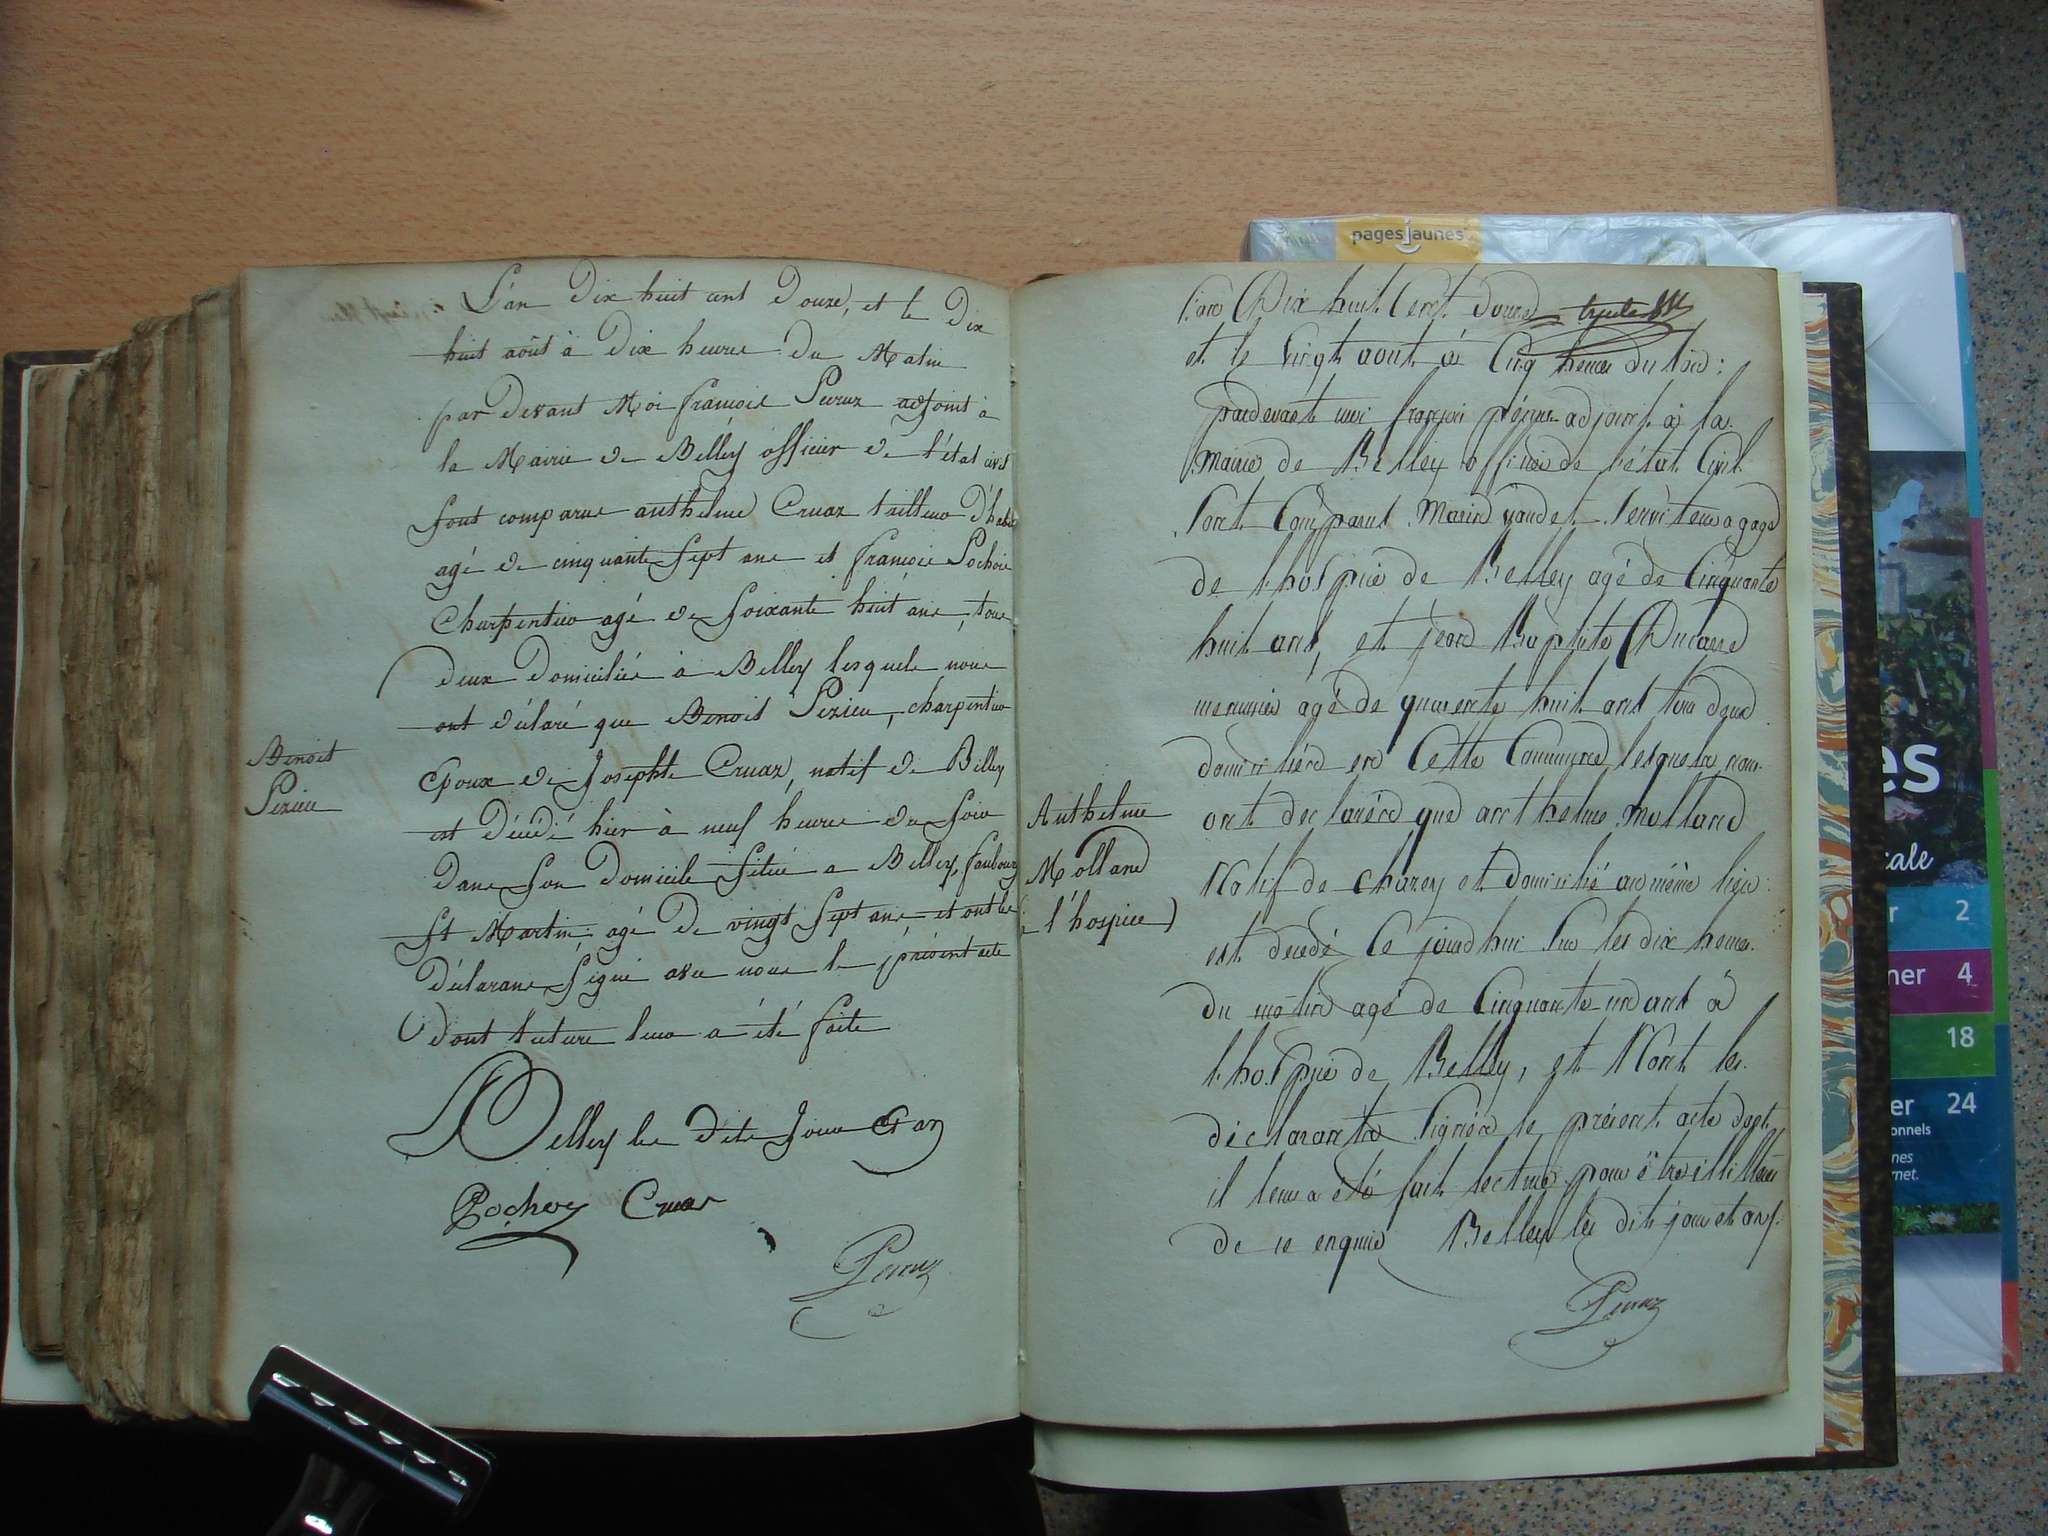 L'an Dix huit cent Douze, et le Dix
huit août à Dix heures du Matin
par Devant Moi françois Peruz adjoint à
la Mairie de Belley officier de l'état civil
sont comparus anthelme Cruaz tailleur d'habit
agé de cinquante sept ans et françois
Charpentier agé de soixante huit ans, tous
deux Domiciliés à Belley lesquels nous
ont déclaré que Benoit Pezieu, charpentier
Epoux de Josephte Cruaz, natif de Belley
est Décédé hier à neuf heures du soir
Dans son Domicile situé a Belley, faubourg
St Martin agé de vingt sept ans et ont les
Déclarans signé avec nous le présent acte
dont lecture leur a été faite
Belley les dits Jour et an
Cruaz
Peruz
Benoit
Pezieu
l'an Dix huit Cent douze
et le Vingt aout à Cinq heures du soir:
pardevant moi françois péruz adjoint à la
Mairie de Belley officier de l'état Civil
sont Comparus Marin serviteur a gage
de l'hospice de Belley agé de Cinquante
huit ans, et jean Baptiste
menuisier agé de quarente huit ans tous deux
domiciliés en Cette Commune lesquels nous
ont declarés que anthelme molland
Natif de chazey et domicilié au même lieu
est decedé Ce jourdhui sur les dix heures
du matin agé de Cinquante un ans à
l'hospice de Belley, et N'ont les
déclarants signés le présent acte dont
il leur a été fait lecture pour
de ce enquis Belley les dits jour et an.
Peruz
Anthelme
Molland
(à l'hospice)
pagesjaunes
es
cale
r 2
ner 4
18
er 24
onnels
nes
rnet.